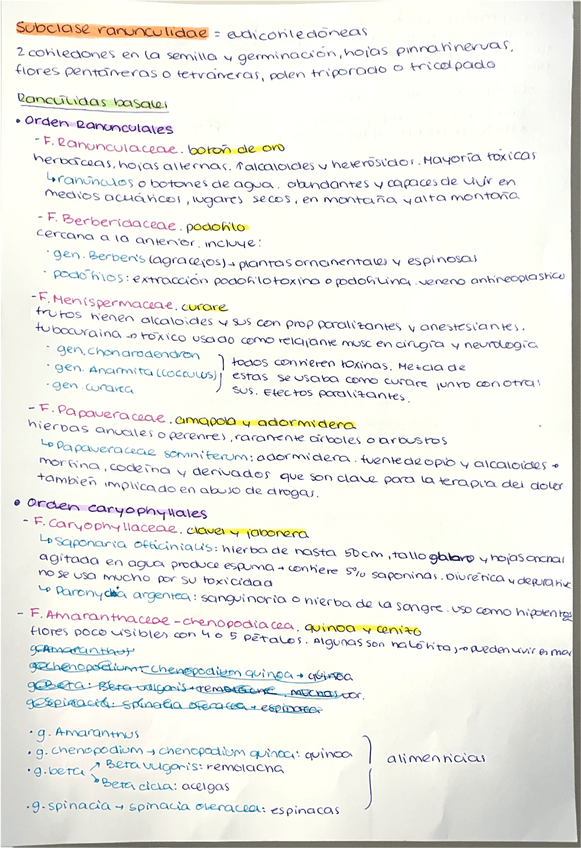 Subclase ranunculidae = eudicotiledóneas
2 cotiledones en la semilla y germinación, hojas pinnatinervas,
flores pentámeras o tetrámeras, polen triporado o tricolpado
Rancúlidas basales
• Orden Ranunculales
- F. Ranunculaceae. botón de oro
herbáceas, hojas alternas. ↑alcaloides y heterósidos. Mayoría tóxicas
↳ ranúnculos o botones de agua. abundantes y capaces de vivir en
medios acuáticos, lugares secos, en montaña y alta montaña.
- F. Berberidaceae. podofilo
cercana a la anterior. incluye:
· gen. Berberis (agracejos) → plantas ornamentales y espinosas
· podófilos: extracción podofilotoxina o podofilina. veneno antineoplástico
- F. Menispermaceae. curare
frutos tienen alcaloides y sus con prop paralizantes y anestesiantes.
tubocuraina → tóxico usado como relajante musc en cirugía y neurología
· gen. chonarodendron
· gen. Anarmita (cocculos)
· gen. curarea
todos contienen toxinas. Mezcla de
estas se usaba como curare junto con otras
sus. Efectos paralizantes.
- F. Papaveraceae. amapola y adormidera
hierbas anuales o perennes, raramente árboles o arbustos
↳ Papaveraceae somniferum: adormidera. fuente de opio y alcaloides →
morfina, codeína y derivados que son clave para la terapia del dolor
también implicado en abuso de drogas.
• Orden caryophyllales
- F. Caryophyllaceae. clavel y jabonera
↳ Saponaria officinialis: hierba de hasta 50cm, tallo glabro y hojas anchas
agitada en agua produce espuma → contiere 5% saponinas. Diurética y depurative
no se usa mucho por su toxicidad
↳ Paronychia argentea: sanguinoria o hierba de la sangre. uso como hipotentes
- F. Amaranthaceae - chenopodiacea. quinoa y cenizo
flores poco visibles con 4 o 5 pétalos. Algunas son halófitas, → pueden vivir en mar
g. Amaranthus
g. chenopodium → chenopodium quinoa → quinoa
g. Beta: Beta vulgaris → remolacha, muchas var.
g. espinacia: spinalia oleracea → espinaca
· g. Amaranthus
· g. chenopodium → chenopodium quinoa: quinoa
· g. beta Beta vulgaris: remolacha
Beta cicla: acelgas
· g. spinacia → spinacia oleracea: espinacas
alimenticias